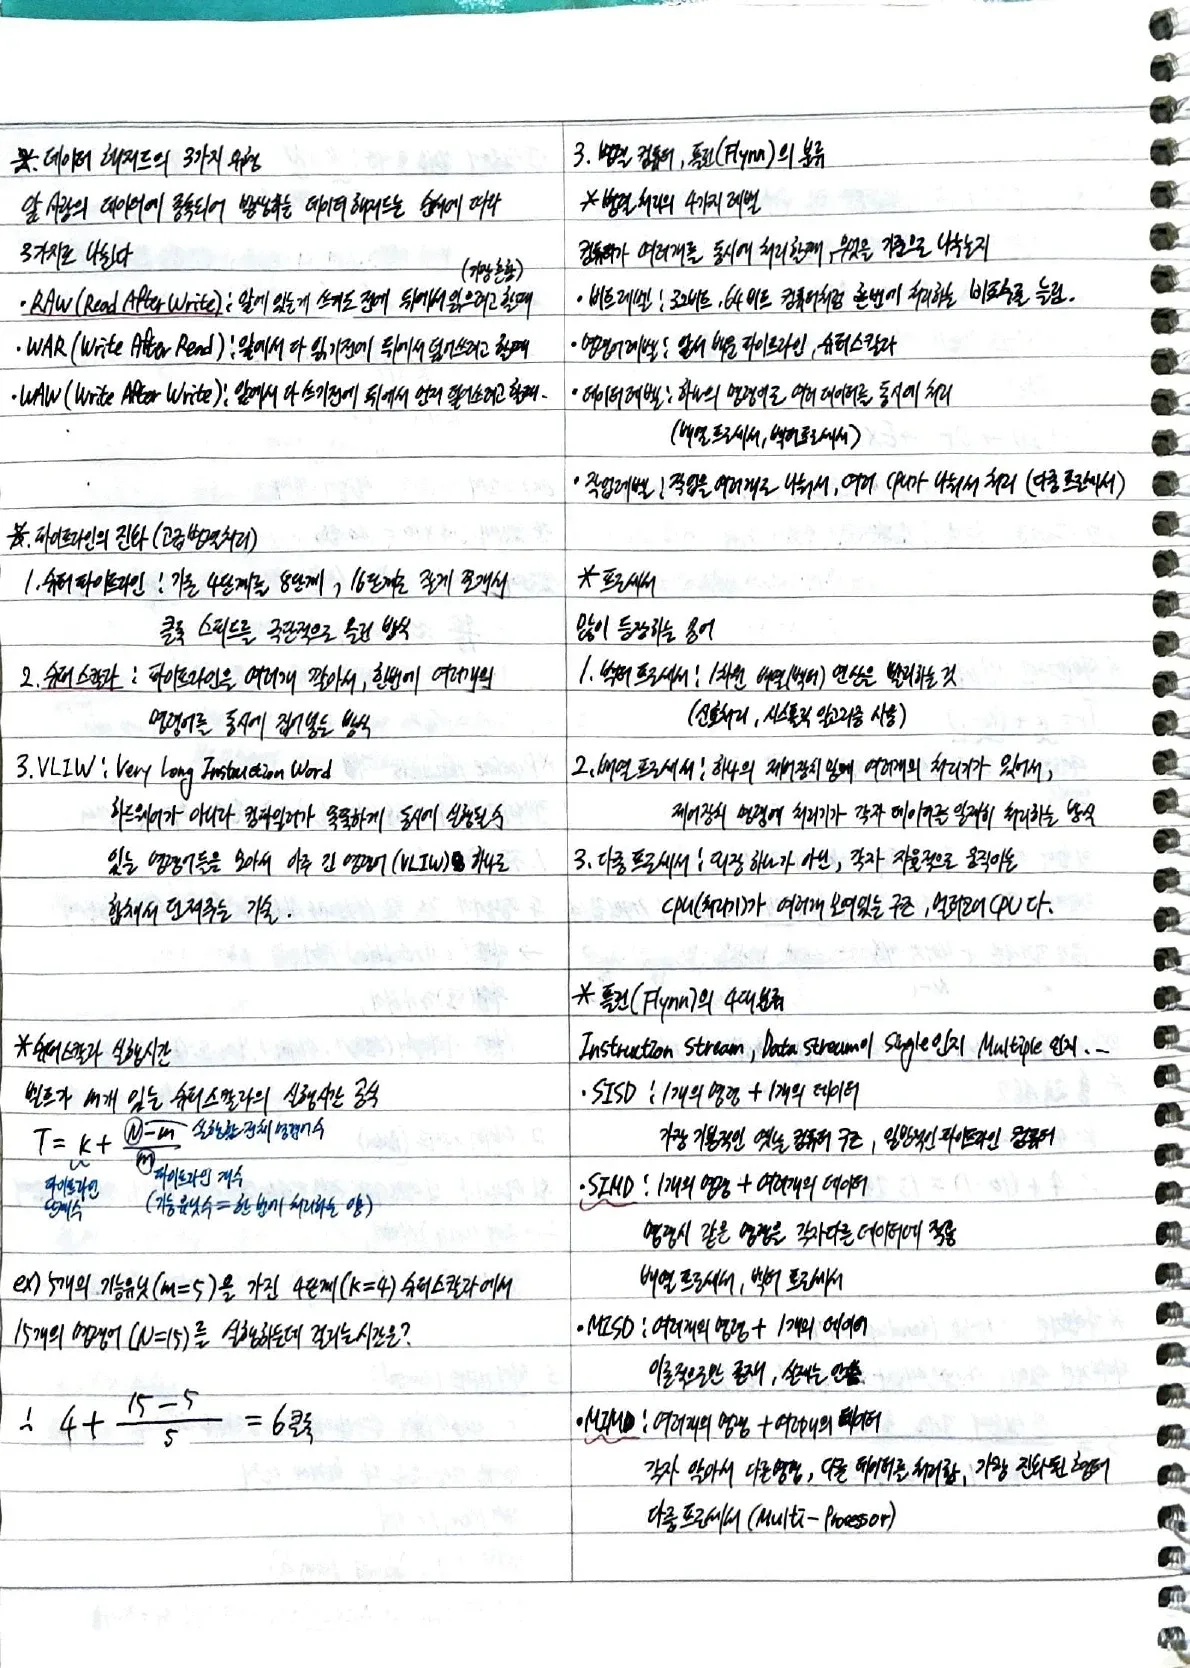 ※. 데이터 해저드의 3가지 유형
앞 사람의 데이터에 중독되어 발생하는 데이터 해저드는 순서에 따라
3가지로 나뉜다
(가장 흔함)
· RAW (Read After Write) : 앞에 있는게 쓰기도 전에 뒤에서 읽으려고 할때
· WAR (Write After Read) : 앞에서 다 읽기전에 뒤에서 덮어쓰려고 할때
· WAW (Write After Write) : 앞에서 다 쓰기전에 뒤에서 먼저 덮어쓰려고 할때.
※. 파이프라인의 진화 (고급병렬처리)
1. 슈퍼파이프라인 : 기존 4단계를 8단계, 16단계로 잘게 쪼개서
클록 스피드를 극단적으로 올린 방식
2. 슈퍼스칼라 : 파이프라인을 여러개 깔아서, 한번에 여러개의
명령어를 동시에 집어넣는 방식
3. VLIW : Very Long Instruction Word
하드웨어가 아니라 컴파일러가 똑똑하게 동시에 실행될수
있는 명령어들을 모아서 아주 긴 명령어 (VLIW) 하나로
합쳐서 던져주는 기술.
* 슈퍼스칼라 실행시간
벨트가 m개 있는 슈퍼스칼라의 실행시간 공식
T = k + (N-m)/m 실행할 전체 명령어수
파이프라인 단계수
파이프라인 개수
(기능유닛수 = 한번에 처리하는 양)
ex) 5개의 기능유닛 (m=5)을 가진 4단계 (k=4) 슈퍼스칼라에서
15개의 명령어 (N=15)를 실행하는데 걸리는시간은?
∴ 4 + (15-5)/5 = 6클록
3. 병렬 컴퓨터, 플린(Flynn)의 분류
* 병렬처리의 4가지 레벨
컴퓨터가 여러개를 동시에 처리할때, 무엇을 기준으로 나눅눈지
· 비트레벨 : 32비트, 64비트 컴퓨터처럼 한번에 처리하는 비트수를 늘림.
· 명령어레벨 : 앞서 배운 파이프라인, 슈퍼스칼라
· 데이터레벨 : 하나의 명령어로 여러 데이터를 동시에 처리
(배열프로세서, 벡터프로세서)
· 작업레벨 : 작업을 여러개로 나눠서, 여러 CPU가 나눠서 처리 (다중프로세서)
* 프로세서
많이 등장하는 용어
1. 벡터프로세서 : 1차원 배열(벡터) 연산을 빨리하는 것
(신호처리, 시스톨릭 알고리즘 사용)
2. 배열 프로세서 : 하나의 제어장치 밑에 여러개의 처리기가 있어서,
제어장치 명령에 처리기가 각자 데이터를 일제히 처리하는 방식
3. 다중프로세서 : 대장 하나가 아닌, 각자 자율적으로 움직이는
CPU(처리기)가 여러개 모여있는 구조, 멀티코어 CPU 다.
* 플린(Flynn)의 4대 분류
Instruction Stream, Data Stream이 Single인지 Multiple 인지..
· SISD : 1개의 명령 + 1개의 데이터
가장 기본적인 옛날 컴퓨터 구조, 일반적인 파이프라인 컴퓨터
· SIMD : 1개의 명령 + 여러개의 데이터
명령시 같은 명령을 각자다른데이터에 적용
배열프로세서, 벡터 프로세서
· MISD : 여러개의 명령 + 1개의 데이터
이론적으로만 존재, 실제는 안씀.
· MIMD : 여러개의 명령 + 여러개의 데이터
각자 알아서 다른명령, 다른 데이터를 처리함, 가장 진화된 형태
다중프로세서 (Multi-Processor)